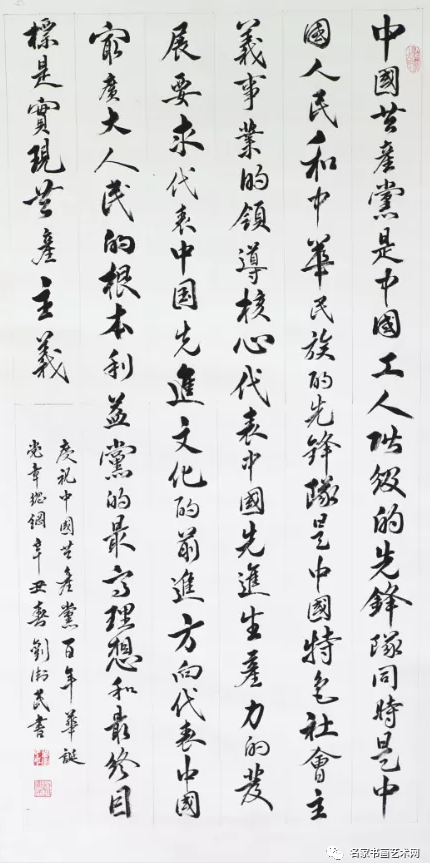 中國共產黨是中國工人階級的先鋒隊同時是中
國人民和中華民族的先鋒隊是中國特色社會主
義事業的領導核心代表中國先進生產力的發
展要求代表中国先進文化的前進方向代表中國
最廣大人民的根本利益黨的最高理想和最終目
標是實現共產主義
慶祝中國共產黨百年華誕
党章總綱辛丑春劉書
名家书画艺术网